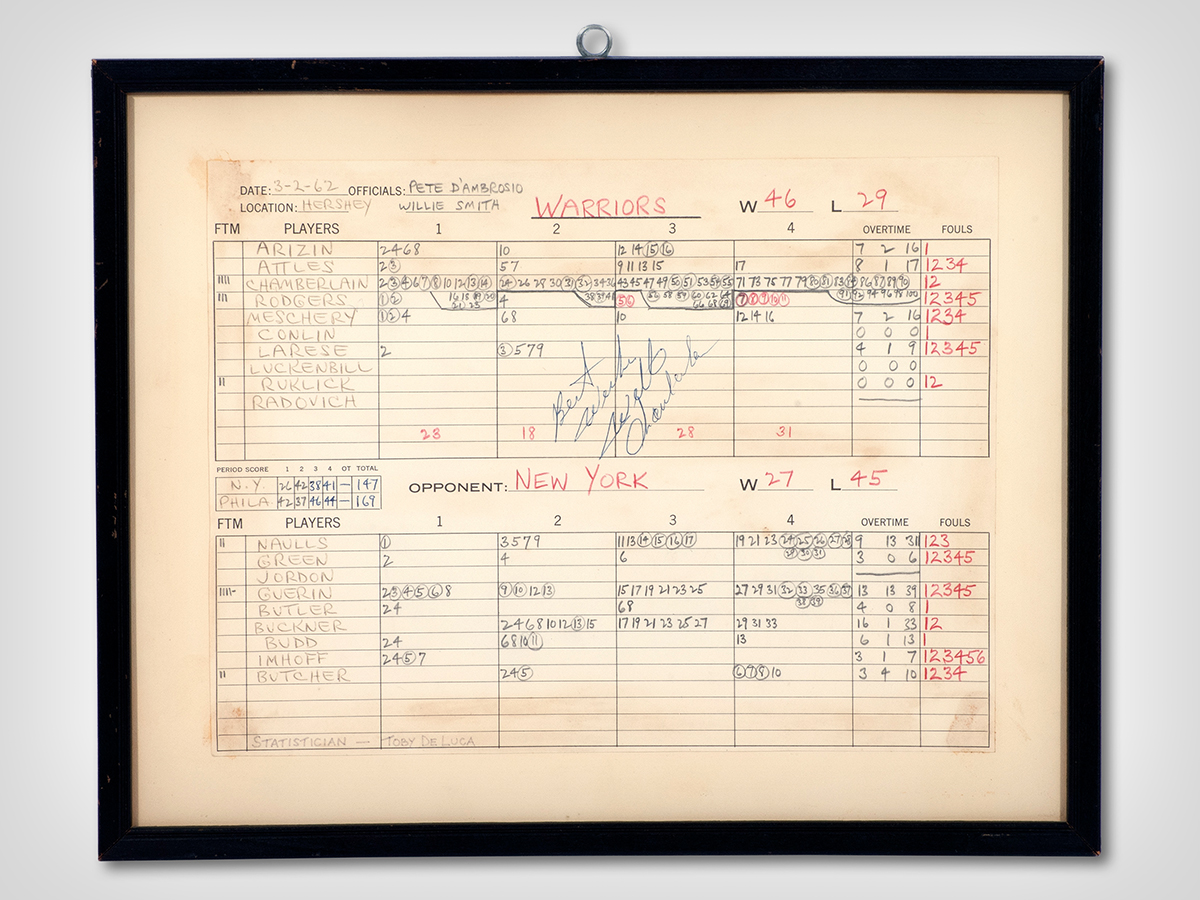 DATE: 3-2-62 OFFICIALS: PETE D'AMBROSIO
LOCATION: HERSHEY WILLIE SMITH WARRIORS W 46 L 29
FTM PLAYERS 1 2 3 4 OVERTIME FOULS
ARIZIN 2 4 6 8 10 12 14 15 16 7 2 16 1
ATTLES 2 3 5 7 9 11 13 15 17 8 1 17 1 2 3 4
CHAMBERLAIN 2 3 4 6 7 8 10 12 13 14 24 26 28 30 31 32 34 36 43 45 47 49 50 51 53 54 55 71 73 75 77 79 80 81 83 84 86 87 89 90 12
RODGERS 1 2 4 5 6 7 8 9 10 11 91 92 94 96 98 100 1 2 3 4 5
MESCHERY 1 2 4 6 8 10 12 14 16 7 2 16 1 2 3 4
CONLIN 0 0 0 1
LARESE 2 3 5 7 9 4 1 9 1 2 3 4 5
LUCKENBILL 0 0 0
RUKLICK 0 0 0 1 2
RADOVICH
Best Wishes Wilt Chamberlain
23 18 28 31
PERIOD SCORE 1 2 3 4 OT TOTAL
N.Y. 26 42 38 41 — 147
PHILA 42 37 46 44 — 169
OPPONENT: NEW YORK W 27 L 45
FTM PLAYERS 1 2 3 4 OVERTIME FOULS
NAULLS 1 3 5 7 9 11 13 14 15 16 17 19 21 23 24 25 26 27 28 9 13 31 1 2 3
29 30 31
GREEN 2 4 6 3 0 6 1 2 3 4 5
JORDON
GUERIN 2 3 4 5 6 8 9 10 12 13 15 17 19 21 23 25 27 29 31 32 33 35 36 37 13 13 39 1 2 3 4 5
38 39
BUTLER 2 4 6 8 4 0 8 1
BUCKNER 2 4 6 8 10 12 13 15 17 19 21 23 25 27 29 31 33 16 1 33 1 2
BUDD 2 4 6 8 10 11 13 6 1 13 1
IMHOFF 2 4 5 7 3 1 7 1 2 3 4 5 6
BUTCHER 2 4 5 6 7 9 10 3 4 10 1 2 3 4
STATISTICIAN — TOBY DE LUCA